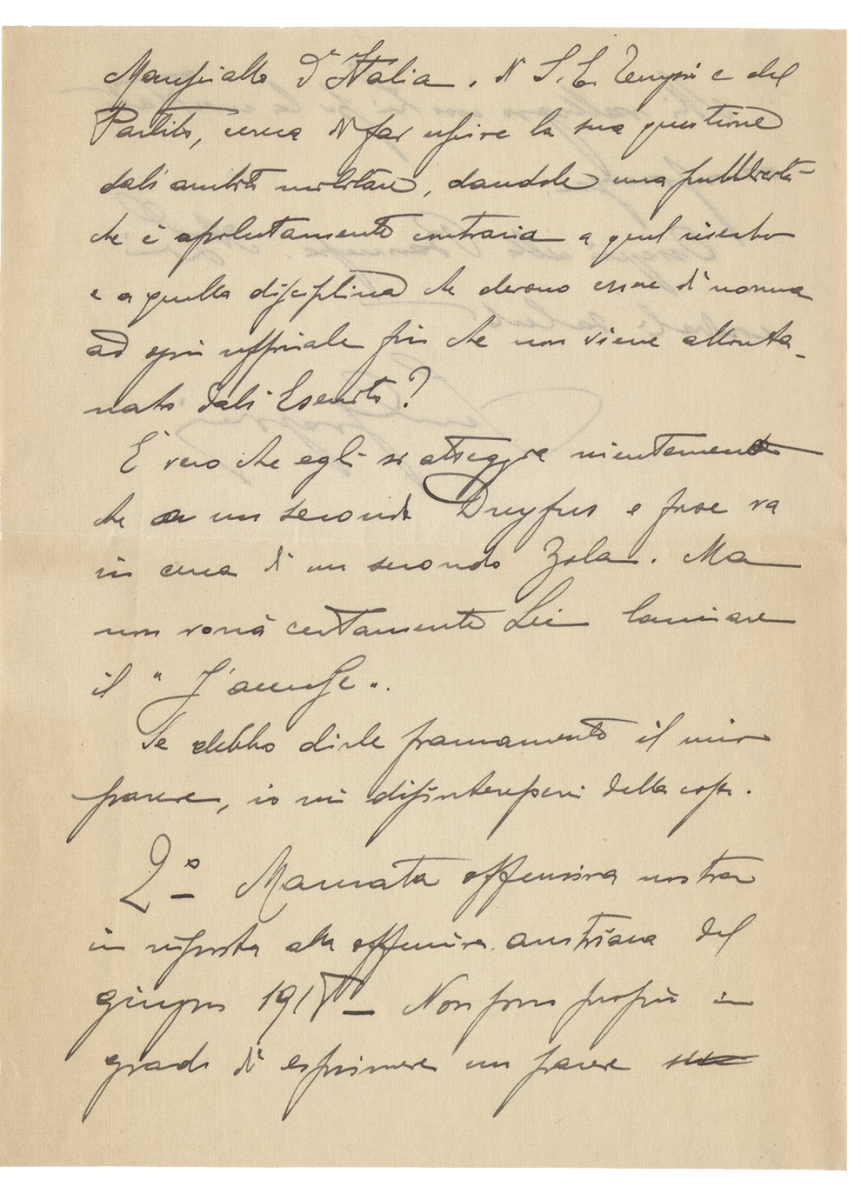 Maresciallo d'Italia, di S. E. Teruzzi e del
Partito, cerca di far uscire la sua questione
dall'ambito militare, dandole una pubblicità
che è assolutamente contraria a quel riserbo
e a quella disciplina che devono essere di norma
ad ogni ufficiale fin che non viene allonta-
nato dall'Esercito?
È vero che egli si atteggia nientemeno
che a un secondo Dreyfus e forse va
in cerca di un secondo Zola. Ma
non vorrà certamente Lei lanciare
il "J'accuse".
Se debbo dirle francamente il mio
parere, io mi disinteresserei della cosa.
2° Mancata offensiva nostra
in risposta alla offensiva austriaca del
giugno 1918 – Non sono proprio in
grado di esprimere un parere